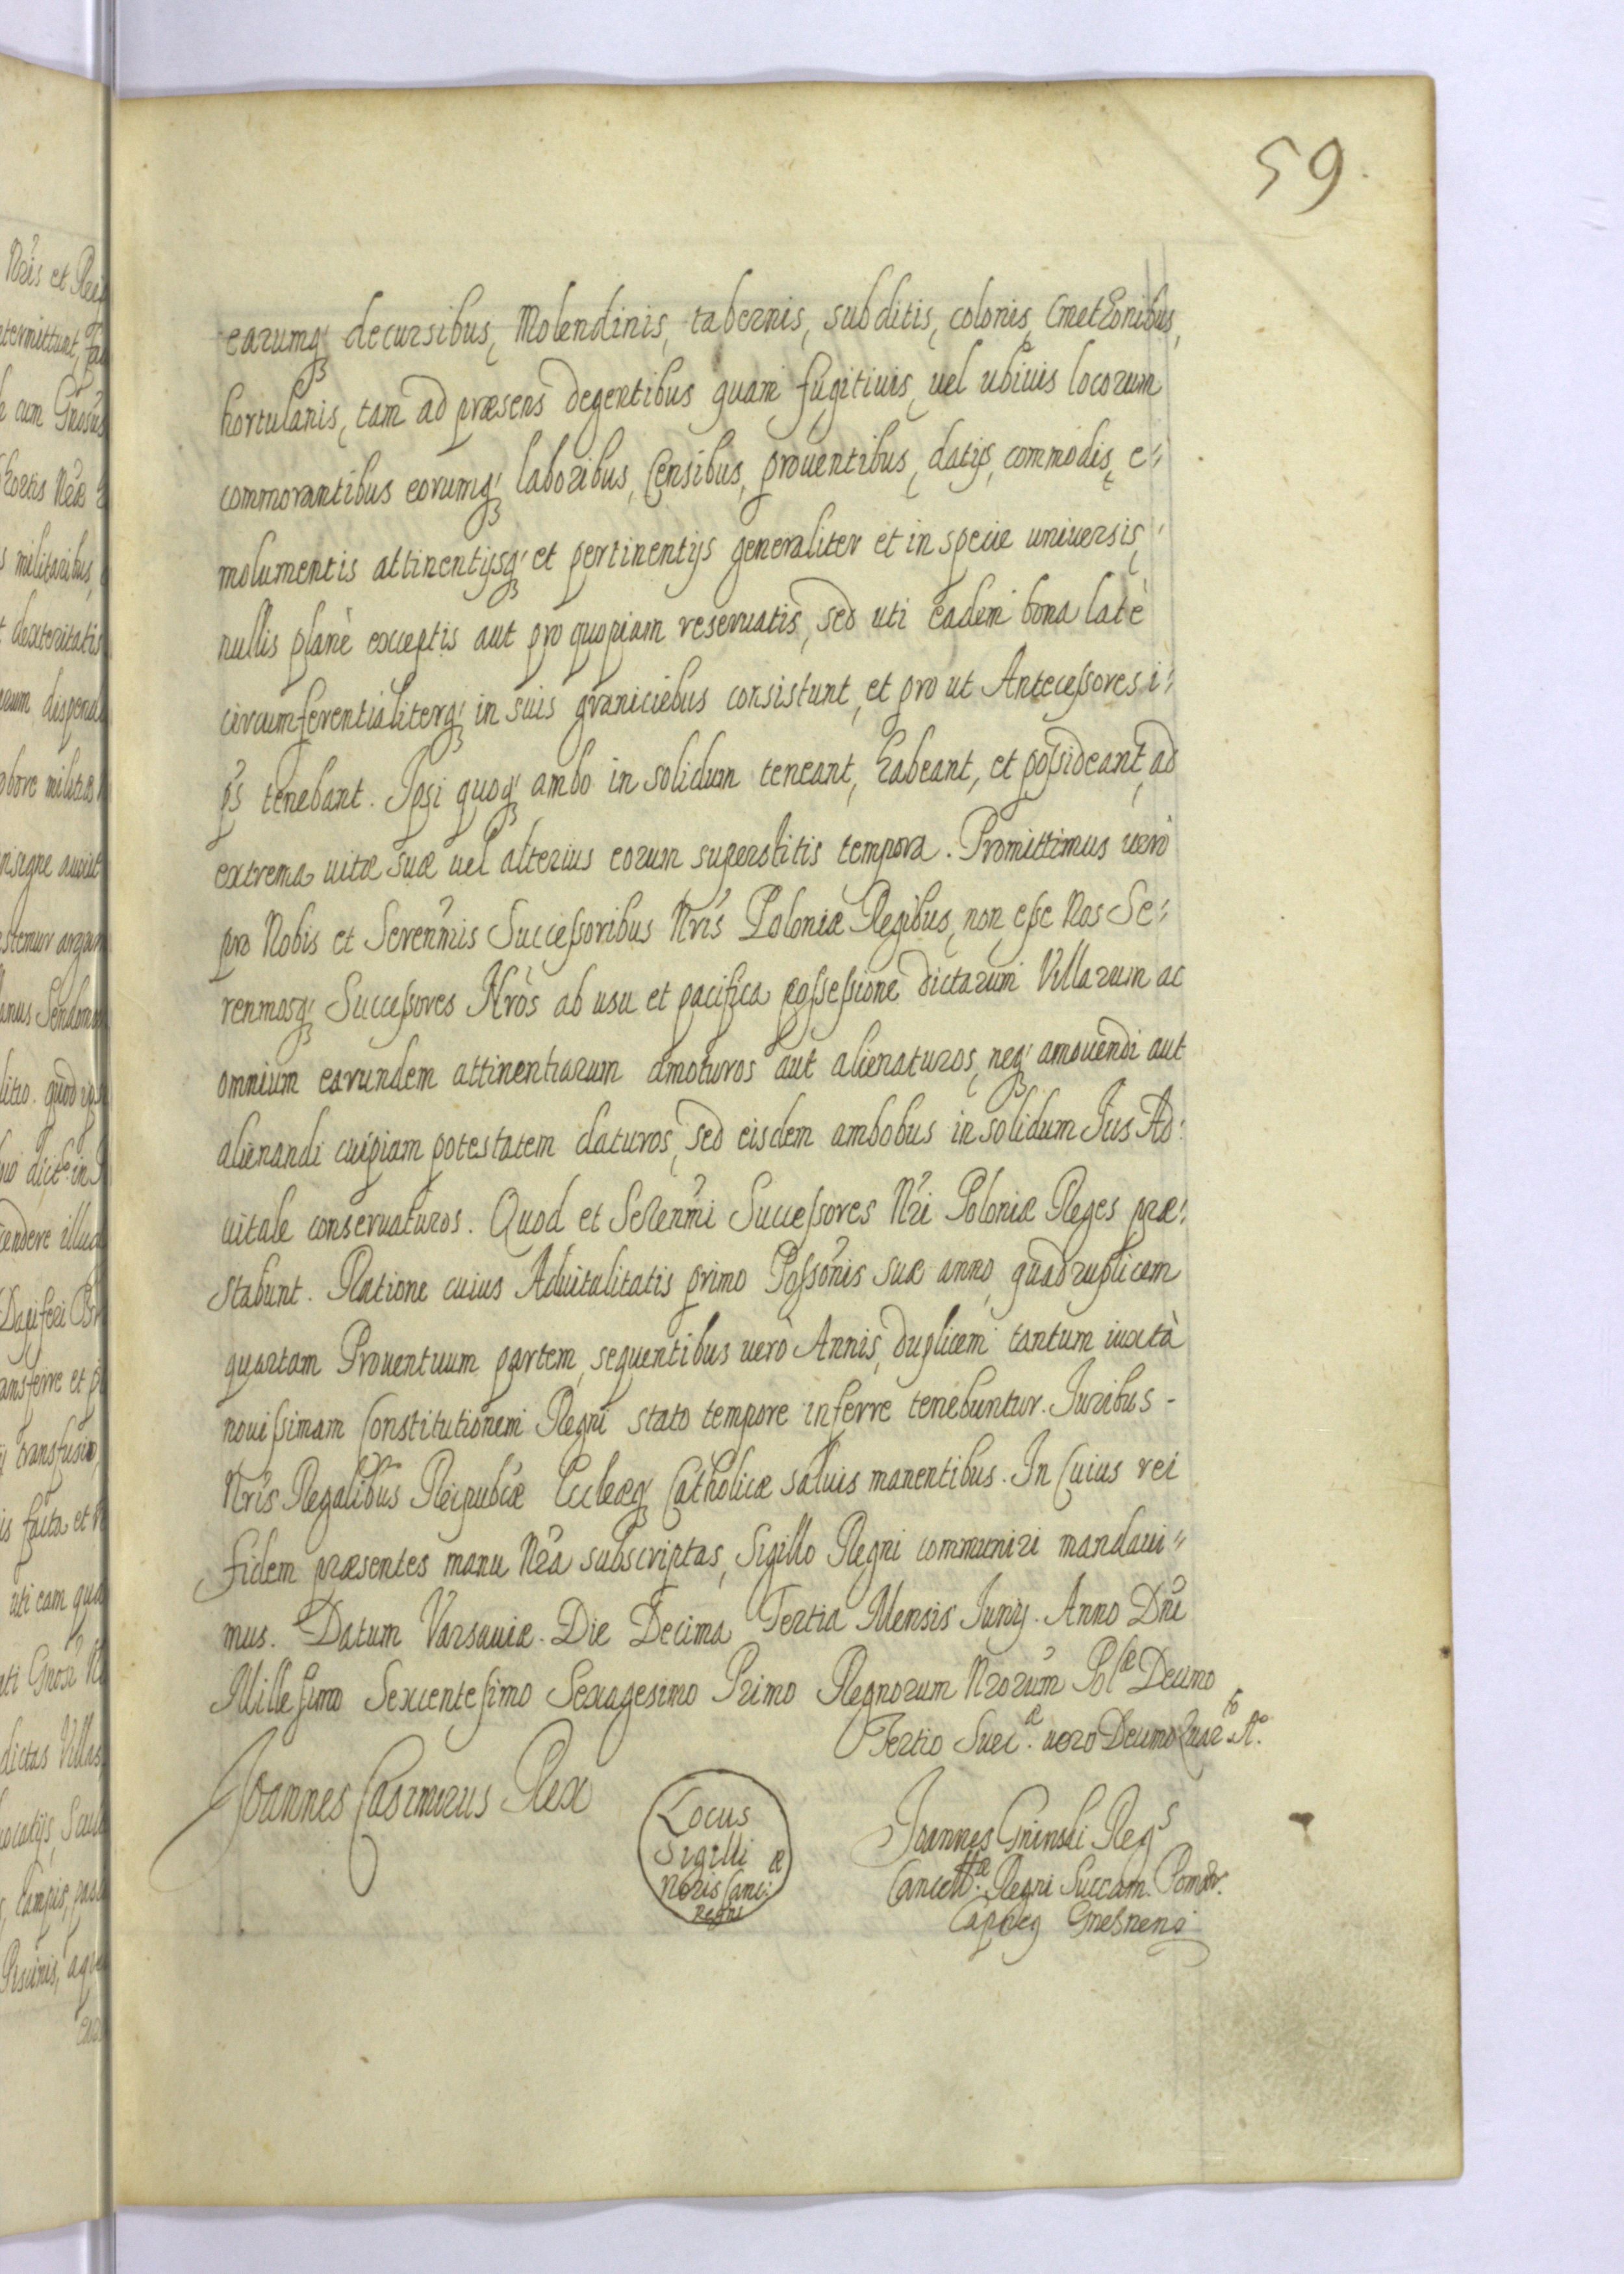 59.
earumq3 decursibus, Molendinis, tabernis, subditis, colonis, Cmethonibus,
hortulanis, tam ad præsens degentibus quam fugitiuis, uel ubiuis locorum
commorantibus eorumq3 laboribus, Censibus, prouentibus, datijs, commodis, e:
molumentis attinentijsq3 et pertinentijs generaliter et in specie uniuersis,
nullis planè exceptis aut pro quopiam reseruatis, sed uti eadem bona latè
circumferentialiterq3 in suis graniciebus consistunt, et pro ut Antecessores i:
ps̃ tenebant. Ipsi quoq3 ambo in solidum teneant, habeant, et possideant, ad
extrema uitæ suæ uel alterius eorum superstitis tempora. Promittimus uero
pro Nobis et Serenm̃is Successoribus Nr̃is Poloniæ Regibus, non esse Nos Se:
renmosq3 Successores Nr̃os ab usu et pacifica possessione dictarum Villarum ac
omnium earundem attinentiarum amoturos aut alienaturos, neq3 amouendi aut
alienandi cuipiam potestatem daturos, sed eisdem ambobus in solidum Jus Ad:
uitale conseruaturos. Quod et Serenm̃i Successores Nr̃i Poloniæ Reges præ:
stabunt. Ratione cuius Aduitalitatis primo Possõnis suæ anno, quadruplicem
quartam Prouentuum partem, sequentibus uerò Annis, duplicem tantum iuxtà
nouissimam Constitutionem Regni stato tempore inferre tenebuntur. Juribus -
Nr̃is Regalibus Reipublĩcæ Ecclæq3 Catholicæ saluis manentibus. In Cuius rei
fidem præsentes manu Nr̃a subscriptas, Sigillo Regni communiri mandaui:
mus. Datum Varsauiæ. Die Decima Tertia Mensis Junij. Anno Dñi
Millesimo Sexcentesimo Sexagesimo Primo Regnorum Nrorum̃ Polæ Decimo
Tertio Sueciæ. uero Decimo Quarto Ao.
Joannes Casimirus Rex
Locus
Sigilli
Noris Canc:æ
Regni
Joannes Gninski Regs
Cancellæ. Regni Succam. Pomor.
Capneg Gnesnens